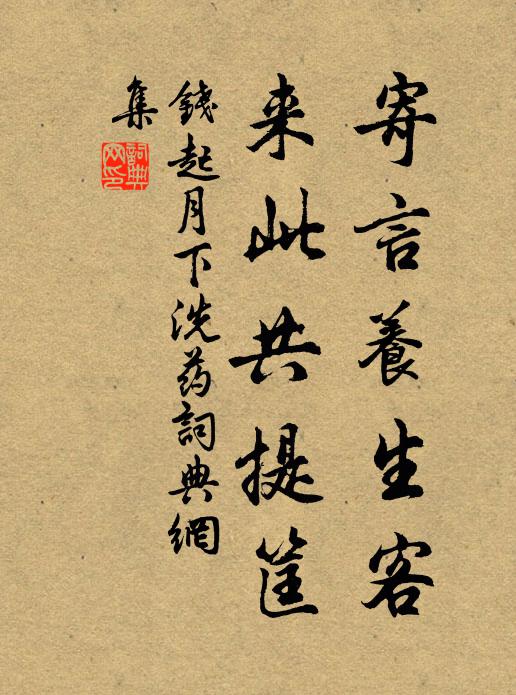 寄言養生客
来此共提筐
錢起月下洗药詞典網
集
詞典
网印